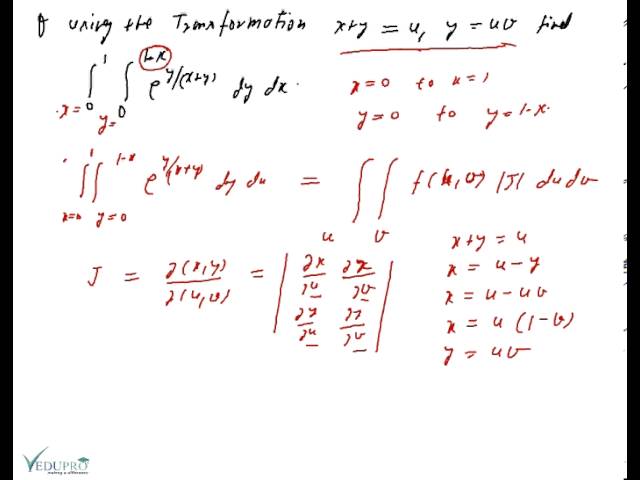 using the Transformation x+y = u, y = uv find
∫₀¹ ∫₀^{1-x} e^{y/(x+y)} dy dx.
x = 0 y = 0
x = 0 to x = 1
y = 0 to y = 1-x.
∫_{x=0}^{1} ∫_{y=0}^{1-x} e^{y/(x+y)} dy dx = ∫_u ∫_v f(u,v) |J| du dv
J = ∂(x,y)/∂(u,v) = | ∂x/∂u ∂x/∂v |
| ∂y/∂u ∂y/∂v |
x+y = u
x = u-y
x = u-uv
x = u(1-v)
y = uv
VEDUPRO
making a difference